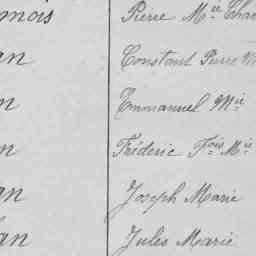 mois Pierre Mie Char
an Constant Pierre
n Emmanuel Mie
n Fréderic Fois Mie
an Joseph Marie
an Jules Marie